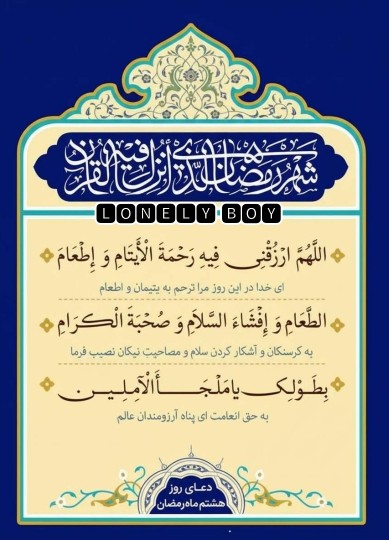 شَهْرُ رَمَضَانَ الَّذِي أُنْزِلَ فِيهِ الْقُرْآن
LONELY BOY
اللَّهُمَّ ارْزُقْنِی فِيهِ رَحْمَةَ الْأَيْتَامِ وَ إِطْعَامَ
ای خدا در این روز مرا ترحم به یتیمان و اطعام
الطَّعَامِ وَ إِفْشَاءَ السَّلاَمِ وَ صُحْبَةَ الْكِرَامِ
به گرسنگان و آشکار کردن سلام و مصاحبت نیکان نصیب فرما
بِطَوْلِکَ یا مَلْجَأَ الْآمِلِینَ
به حق انعامت ای پناه آرزومندان عالم
دعای روز
هشتم ماه رمضان